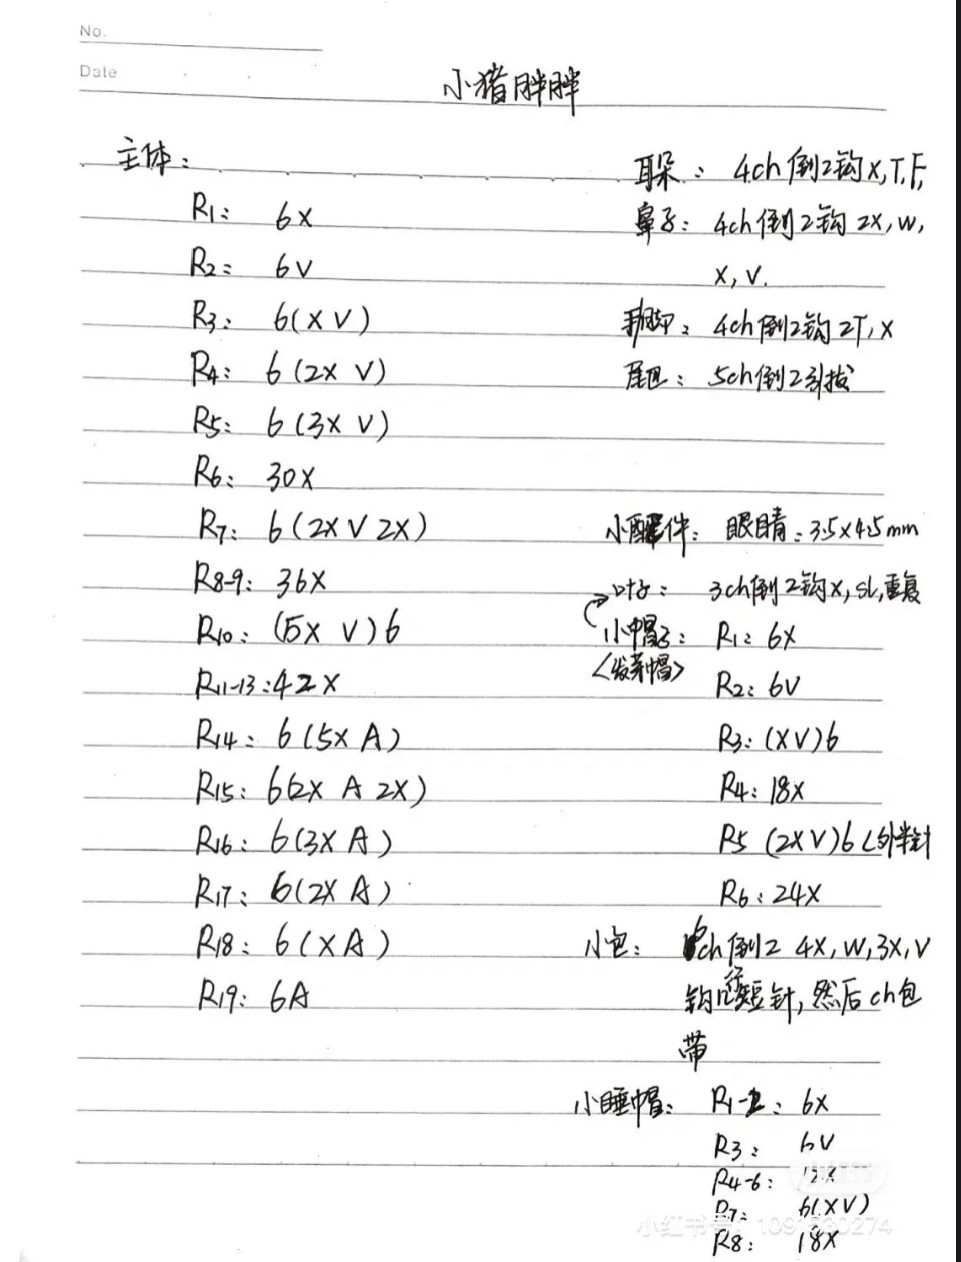 No.
Date
小猪胖胖
主体:
R1: 6X
R2: 6V
R3: 6(X V)
R4: 6(2X V)
R5: 6(3X V)
R6: 30X
R7: 6(2X V 2X)
R8-9: 36X
R10: (5X V)6
R11-13: 42X
R14: 6(5X A)
R15: 6(2X A 2X)
R16: 6(3X A)
R17: 6(2X A)
R18: 6(XA)
R19: 6A
耳朵: 4ch倒2钩X,T,F,
鼻子: 4ch倒2钩 2X,W,
X,V.
手脚: 4ch倒2钩 2T,X
尾巴: 5ch倒2引拔
小配件: 眼睛:3.5X4.5mm
叶子: 3ch倒2钩X,SL,重复
小帽子: R1: 6X
<发芽帽>
R2: 6V
R3: (XV)6
R4: 18X
R5 (2XV)6<外半针
R6: 24X
小包: 6ch倒2 4X,W,3X,V
钩几行短针,然后ch包
带
小睡帽: R1-2: 6X
R3: 6V
R4-6: 12X
R7: 6(XV)
R8: 18X
小红书号: